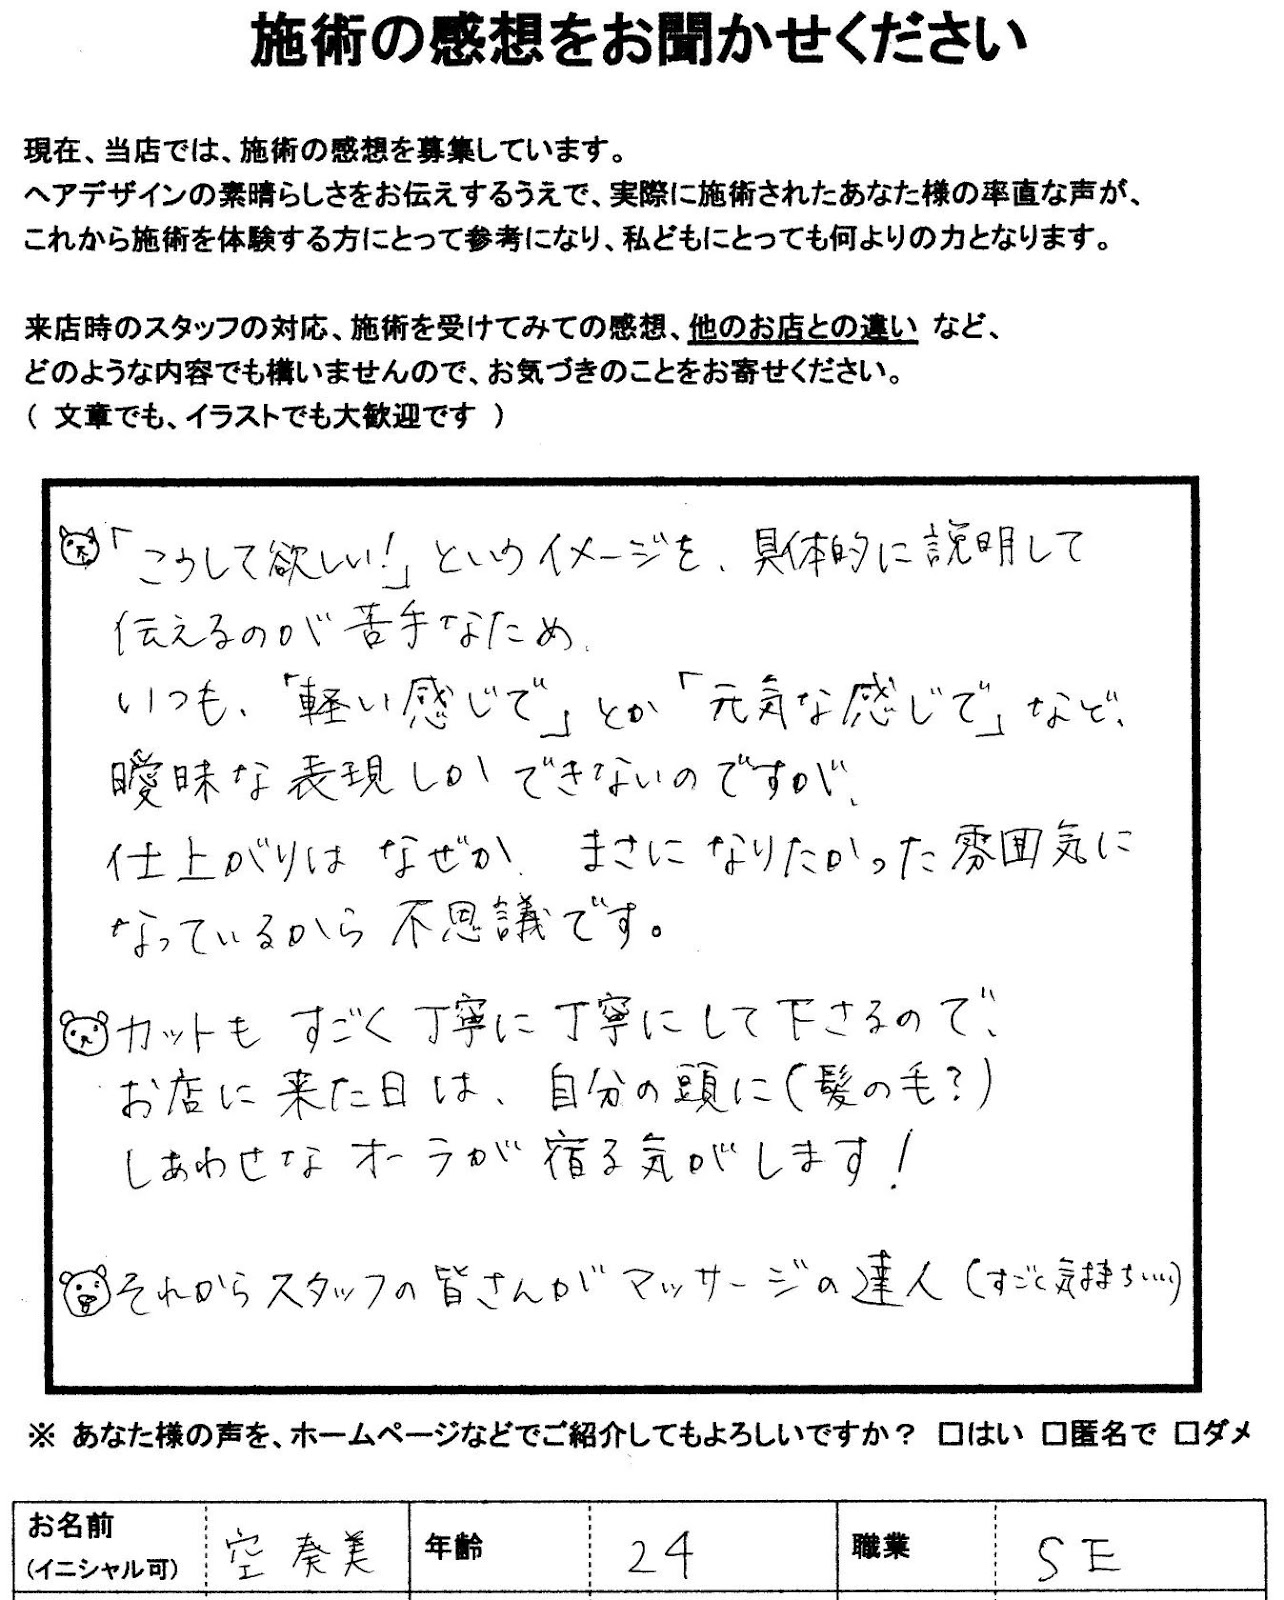 施術の感想をお聞かせください
現在、当店では、施術の感想を募集しています。
ヘアデザインの素晴らしさをお伝えするうえで、実際に施術されたあなた様の率直な声が、
これから施術を体験する方にとって参考になり、私どもにとっても何よりの力となります。
来店時のスタッフの対応、施術を受けてみての感想、他のお店との違い など、
どのような内容でも構いませんので、お気づきのことをお寄せください。
( 文章でも、イラストでも大歓迎です )
「こうして欲しい!」というイメージを、具体的に説明して
伝えるのが苦手なため、
いつも、「軽い感じで」とか「元気な感じで」など、
曖昧な表現しかできないのですが、
仕上がりは なぜか、まさになりたかった雰囲気に
なっているから不思議です。
カットも すごく丁寧に丁寧にして下さるので、
お店に来た日は、自分の頭に(髪の毛?)
しあわせなオーラが宿る気がします!
それからスタッフの皆さんがマッサージの達人(すごく気持ちいい)
※ あなた様の声を、ホームページなどでご紹介してもよろしいですか? □はい □匿名で □ダメ
お名前 空 奏美 年齢 24 職業 SE
(イニシャル可)